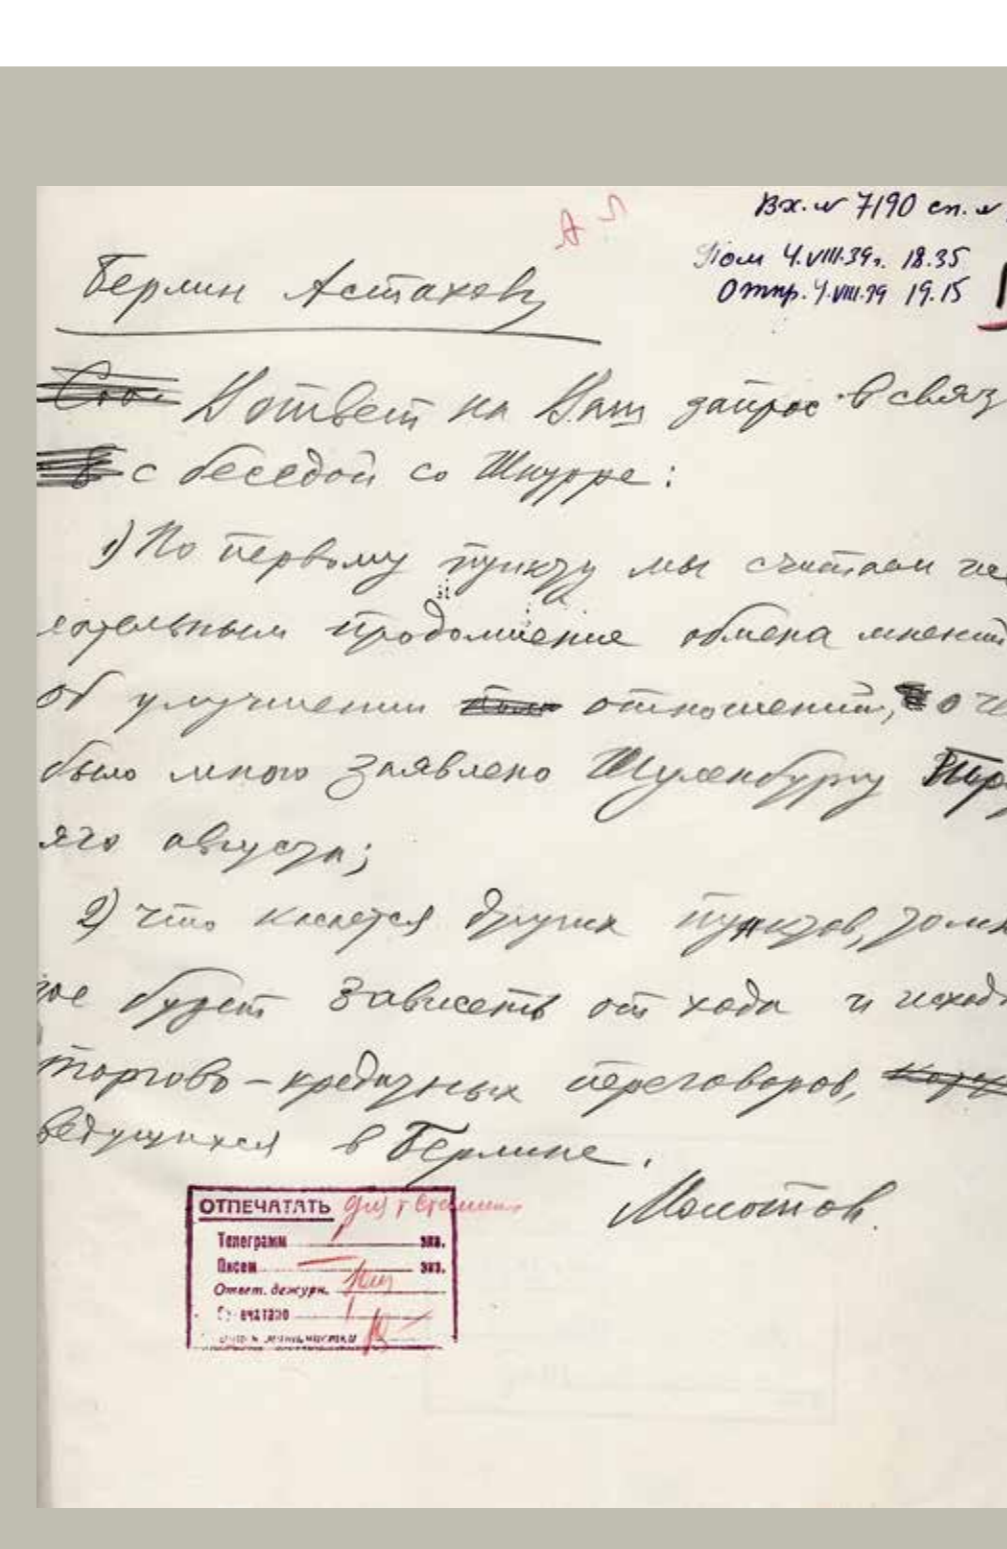 Вх. № 7190 сп. №
Пом 4.VIII.39г. 18.35
Отпр. 4.VIII.39 19.15
Берлин Астахову
В ответ на Ваш запрос в связ
с беседой со Шнурре:
1) По первому пункту мы считаем же
лательным продолжение обмена мнений
об улучшении отношений, о че
было мною заявлено Шуленбургу
его августа;
2) что касается других пунктов, то мн
гое будет зависеть от хода и исхода
торгово-кредитных переговоров,
ведущихся в Берлине.
Молотов.
ОТПЕЧАТАТЬ для т Сталина
Телеграмм экз.
Писем экз.
Ответ. дежурн.